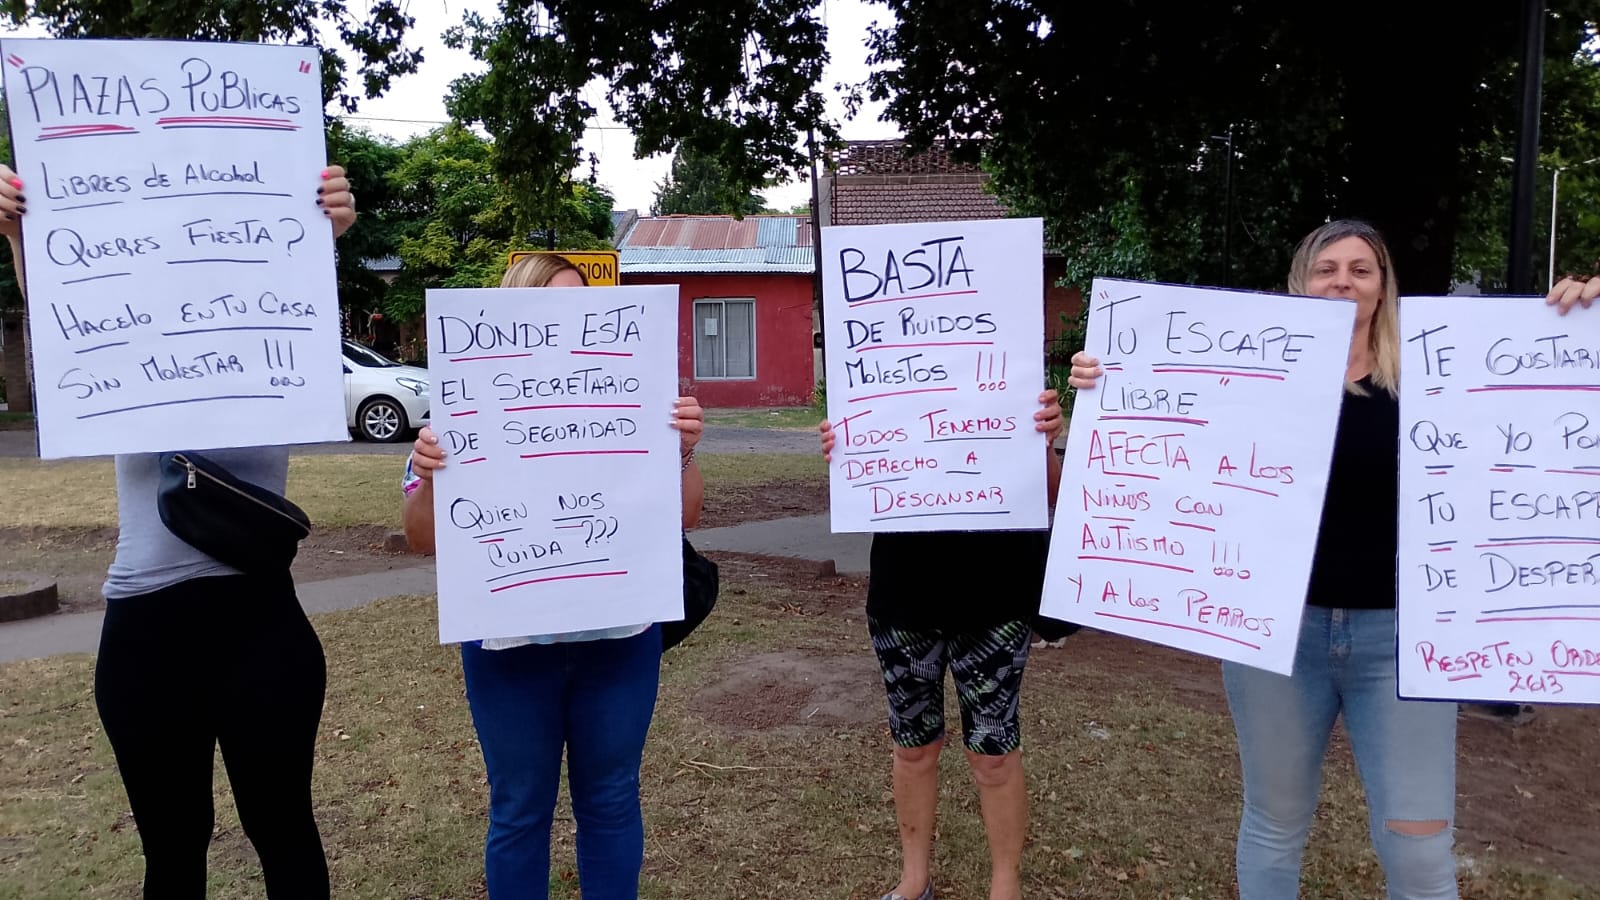 "PlAZAS PUBlicAS"
LiBRES de Alcohol
QUERES FiESTA?
HAcelo EN TU CASA
Sin MolESTAR !!!
SION
DÓNDE ESTÁ
EL SECRETARIO
DE SEGURIDAD
QUIEN NOS
CUIDA ???
BASTA
DE RUIDOS
MolESTOS !!!
TODOS TENEMOS
DERECHO A
DESCANSAR
"TU ESCAPE
LIBRE"
AFECTA A los
NIÑOS CON
AUTISMO !!!
Y A los PERROS
TE GUSTARI
QUE YO PON
TU ESCAPE
DE DESPERT
RESPETEN ORDE
2613